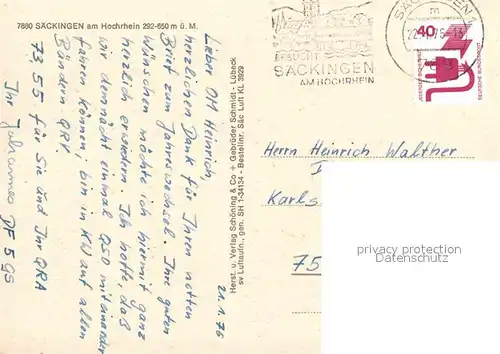 7880 SÄCKINGEN am Hochrhein 292-650 m ü. M.
21.1.76
Lieber OM Heinrich,
herzlichen Dank für Ihren netten
Brief zum Jahreswechsel. Ihre guten
Wünschen möchte ich hiermit ganz
herzlich erwidern. Ich hoffe, daß
wir demnächst einmal QSO miteinander
fahren können, bin in KW auf allen
Bändern QRV.
73 55 für Sie und Ihr QRA
Ihr Johannes DF 5 GS
Herst. u. Verlag Schöning & Co + Gebrüder Schmidt - Lübeck
sv Luftaufn., gen. SH 1-34134 - Bestellnr. Säc Luft KL 3929
BESUCHT
SÄCKINGEN
AM HOCHRHEIN
SÄCKINGEN
22.
76-13
40
DEUTSCHE BUNDESPOST
Herrn Heinrich Walther
Karls
75
privat-ansichtskarten.com